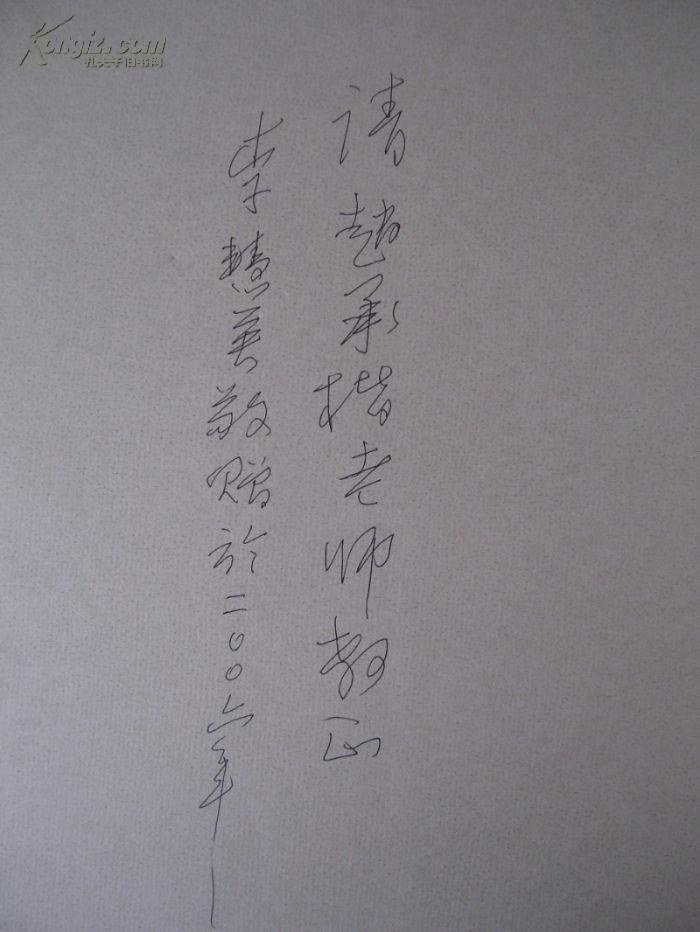 请赵承楷老师教正
李慧英敬赠於二〇〇六年
Kongfz.com
孔夫子旧书网